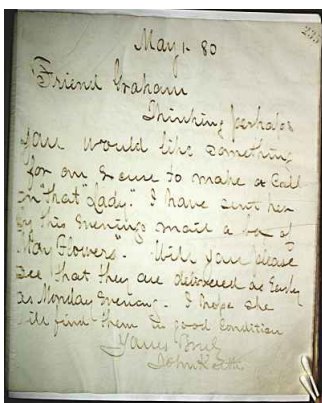 May 1. 80
Friend Graham
Thinking perhaps
you would like something
for an Excuse to make a Call
on that "Lady." I have sent her
by this Evenings mail a box of
"May Flowers". Will you please
see that they are delivered as Early
as Monday Evening. I hope she
will find them in good Condition
Yours Truly
John